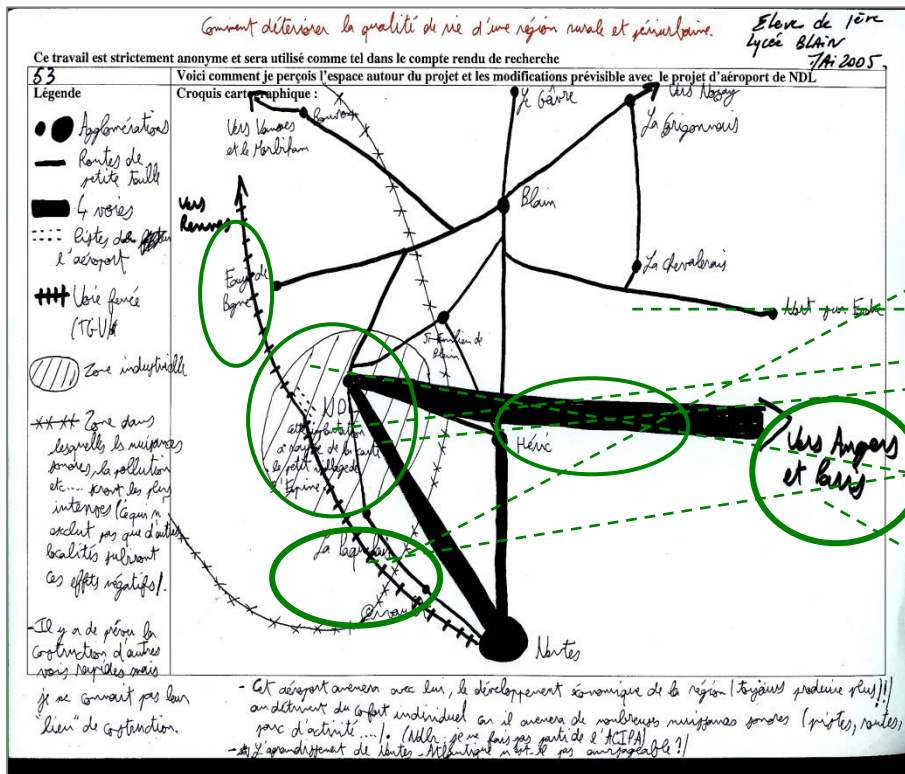 Comment détériorer la qualité de vie d'une région rurale et périurbaine.
Eleve de 1ère
Lycée BLAIN
MAi 2005
Ce travail est strictement anonyme et sera utilisé comme tel dans le compte rendu de recherche
53
Voici comment je perçois l'espace autour du projet et les modifications prévisible avec le projet d'aéroport de NDL
Légende
Agglomérations
Routes de
petite taille
4 voies
pistes de
l'aéroport
Voie ferrée
(TGV)
Zone industrielle
Zone dans
lesquelles les nuisances
sonores, la pollution
etc.... seront les plus
intenses (ce qui n'
exclut pas que d'autres
localités subiront
ces effets négatifs).
- Il y a de prévu la
construction d'autres
voies rapides mais
je ne connait pas leur
"lien" de construction.
Croquis cartographique :
Bouvron
Vers Vannes
et le Morbihan
Le Gâvre
Vers Nozay
La Grigonnais
Blain
Vers
Rennes
Fay de
Bgne
La Chevalerais
Nort sur Erdre
St Emilien de
Blain
NDL
à rayer de la carte
le petit village de
l'Epine
Héric
Vers Angers
et Paris
La Paquelais
Nantes
- Cet aéroport amenera avec lui, le développement économique de la région (toujours produire plus!!)
au détriment du confort individuel car il amenera de nombreuses nuissances sonores (pistes, routes,
parc d'activité...). (Ndlr: je ne fais pas parti de l'ACIPA)
L'agrandissement de Nantes-Atlantique n'est-il pas envisageable?